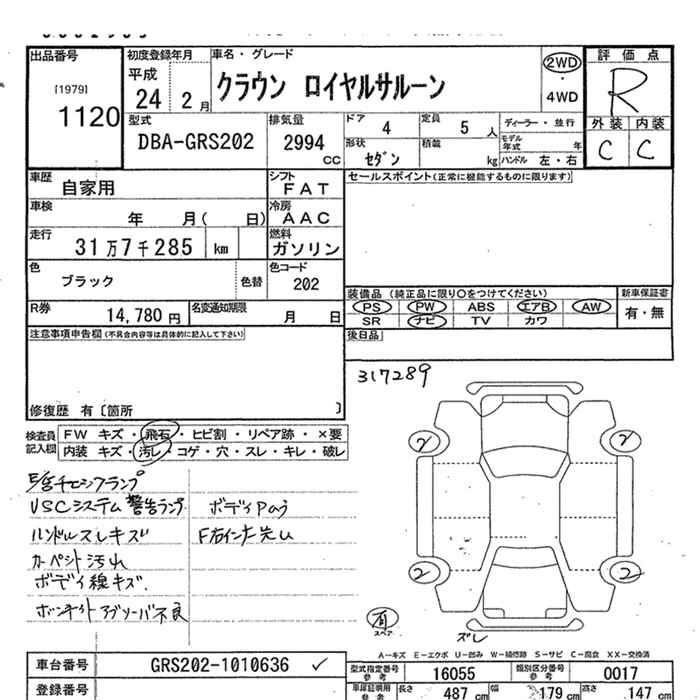 出品番号
[1979]
1120
初度登録年月
平成
24 2 月
車名・グレード
クラウン ロイヤルサルーン
2WD
・
4WD
評価点
R
外装 内装
C C
型式
DBA-GRS202
排気量
2994
CC
ドア 4
定員 5 人
形状 セダン
積載 kg
ディーラー・並行
モデル年式 年
ハンドル 左・右
車歴
自家用
シフト
FAT
車検
年 月( 日)
冷房
AAC
走行
31万7千285 km
燃料
ガソリン
色
ブラック
色替
色コード
202
R券
14,780 円
名変通知期限
月 日
セールスポイント(正常に機能するものに限ります)
装備品 (純正品に限り○をつけてください)
PS PW ABS エアB AW
SR ナビ TV カワ
新車保証書
有・無
後日品
注意事項申告欄(不具合内容等は具体的に記入して下さい)
修復歴 有〔箇所 〕
317289
検査員
記入欄
FW キズ・飛石・ヒビ割・リペア跡・×要
内装 キズ・汚レ・コゲ・穴・スレ・キレ・破レ
VSCシステム 警告ランプ
ハンドルスレキズ
カーペット汚れ
ボディ線キズ.
ボンネットアブソーバ不良
2 2
2 2
有
スペア
ズレ
A-キズ E-エクボ U-凹み W-補修跡 S-サビ C-腐食 XX-交換済
車台番号
GRS202-1010636 ✓
登録番号
型式指定番号
参考
16055
類別区分番号
参考
0017
車庫証明用
参考
長さ 487 cm
幅 179 cm
高さ 147 cm